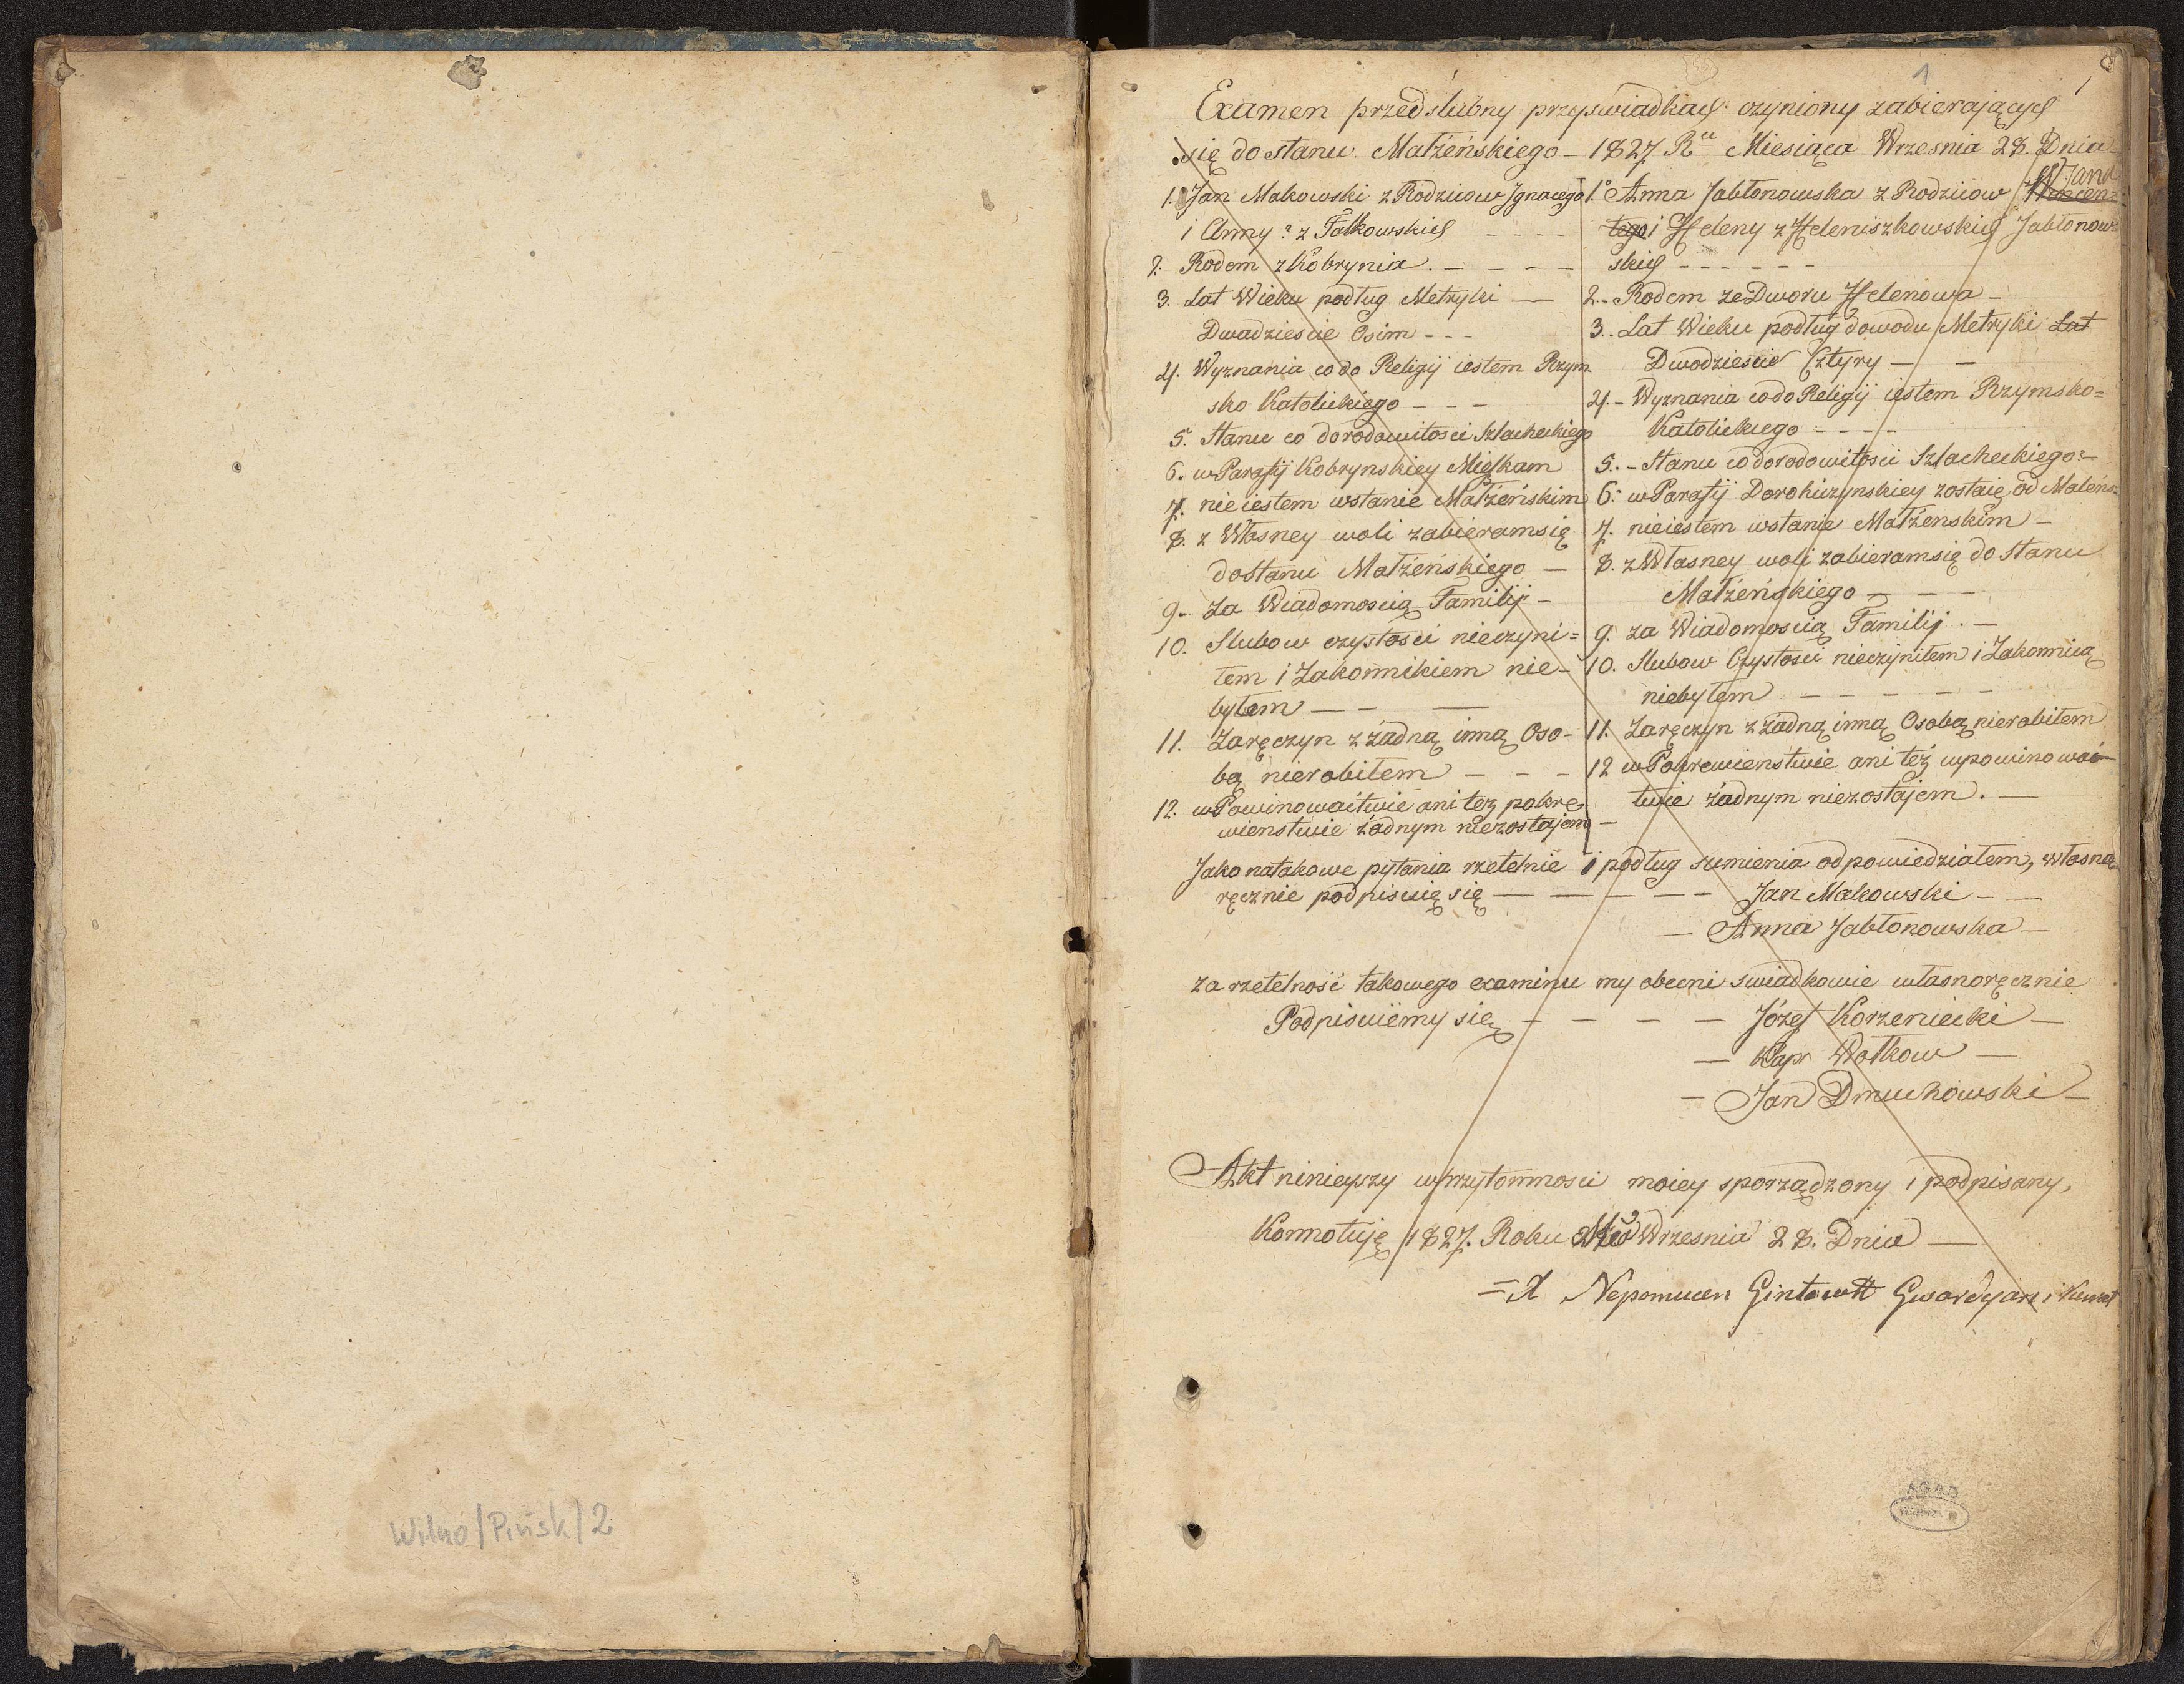 Wilno/Pińsk/2
1
Examen przedślubny przyswiadkach czyniony zabierających
się do stanu Małżeńskiego – 1827 Ru Miesiąca Wrzesnia 28. Dnia
1. Jan Makowski z Rodzicow Ignacego
i Anny z Falkowskich - - - -
2. Rodem z Kobrynia. - - - -
3. Lat Wieku podług Metryki —
Dwadziescie Osim - - -
4. Wyznania co do Religij iestem Rzym-
sko Katolickiego - - -
5. Stanu co dorodowitosci Szlacheckiego
6. w Parafij Kobrynskiey Mięszkam
7. nie iestem wstanie Małżeńskim
8. z Własney woli zabieramsię
dostanu Małżeńskiego —
9. Za Wiadomoscią Familij -
10. Slubow czystosci nieczyni=
łem i Zakonnikiem nie-
byłem — — —
11. Zaręczyn z żadną inną Oso-
bą nierobiłem — - -
12. w Powinowactwie ani też pokre-
wienstwie żadnym niezostajem -
1.° Anna Jabłonowska z Rodzicow Jana
tego i Heleny z Heleniszkowskich Jabłonow-
skich - - - - - -
2. Rodem ze Dworu Helenowa -
3. Lat Wieku podług dowodu Metryki Lat
Dwodziescie Cztyry — —
4. - Wyznania codo Religij iestem Rzymsko=
Katolickiego - - - -
5. - Stanu co dorodowitosci Szlacheckiego -
6. w Parafij Dorohiczynskiey zostaię od Maleńs:
7. nieiestem wstanie Małżenskim -
8. z Własney woli zabieramsię do stanu
Małżeńskiego - - -
9. za Wiadomoscią Familij. -
10. Slubow Czystosci nieczyniłem i Zakonnicą
niebyłem - - - - -
11. Zaręczyn z żadną inną Osobą nierobiłem
12 w Pokrewienstwie ani też wpowinowac-
twie żadnym niezostajem. —
Jako natakowe pytania rzetelnie i podług sumienia odpowiedziałem, własno-
ręcznie podpisuię się — — — — Jan Makowski - —
— Anna Jabłonowska —
za rzetelność takowego examinu my obecni swiadkowie własnoręcznie
Podpisuiemy się - — — — Józef Korzeniecki —
— Kap Wołkow —
— Jan Dmuchowski —
Akt ninieyszy wprzytomnosci moiey sporządzony i podpisany,
Konnotuję 1827. Roku Wrzesnia 28. Dnia —
= X Nepomucen Gintowtt Gwardyan i Kurat
AGAD